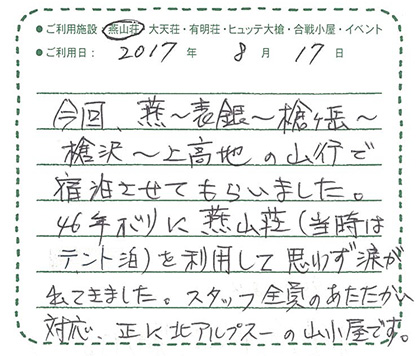 ●ご利用施設 燕山荘・大天荘・有明荘・ヒュッテ大槍・合戦小屋・イベント
●ご利用日： 2017 年 8 月 17 日
今回、燕～表銀～槍ヶ岳～
槍沢～上高地の山行で
宿泊させてもらいました。
46年ボリに燕山荘(当時は
テント泊)を利用して思わず涙が
出てきました。スタッフ全員のあたたかい
対応、正に北アルプス一の山小屋です。